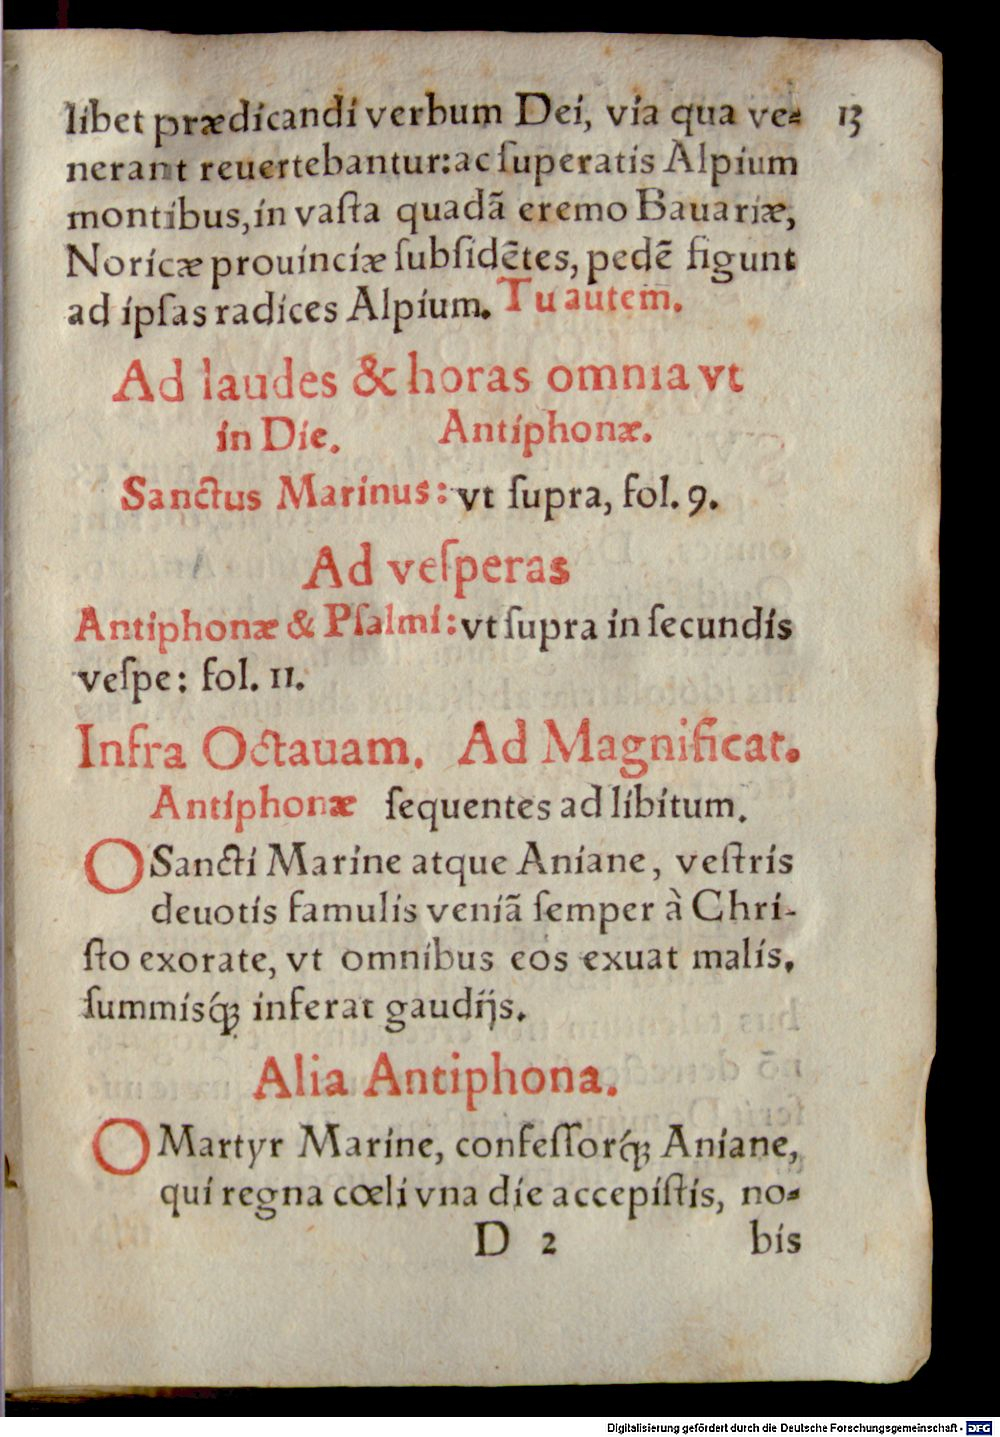 libet prædicandi verbum Dei, via qua ve= 13
nerant reuertebantur: ac ſuperatis Alpium
montibus, in vaſta quadã eremo Bauariæ,
Noricæ prouinciæ ſubſidẽtes, pedẽ figunt
ad ipſas radices Alpium. Tu autem.
Ad laudes & horas omnia vt
in Die. Antiphonæ.
Sanctus Marinus: vt ſupra, fol. 9.
Ad veſperas
Antiphonæ & Pſalmi: vt ſupra in ſecundis
veſpe: fol. 11.
Infra Octauam. Ad Magnificat.
Antiphonæ ſequentes ad libitum.
O Sancti Marine atque Aniane, veſtris
deuotis famulis veniã ſemper à Chri-
ſto exorate, vt omnibus eos exuat malis,
ſummisq́ꝫ inferat gaudijs.
Alia Antiphona.
O Martyr Marine, confeſſorq́ꝫ Aniane,
qui regna cœli vna die accepiſtis, no=
D 2 bis
Digitalisierung gefördert durch die Deutsche Forschungsgemeinschaft - DFG